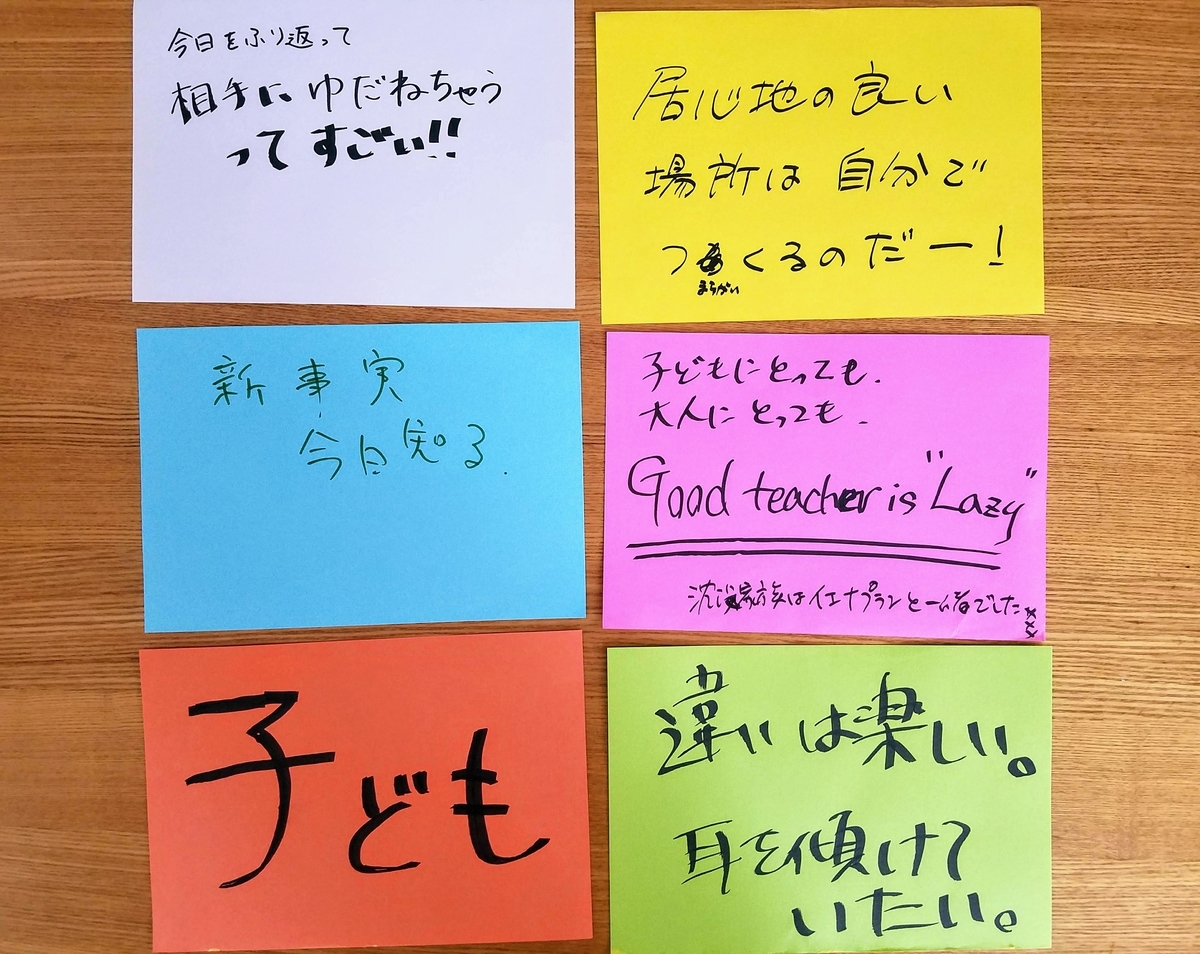 今日をふり返って
相手にゆだねちゃう
ってすごい!!
居心地の良い
場所は自分で
つくるのだー!
まちがい
新事実
今日知る.
子どもにとっても.
大人にとっても.
Good teacher is "Lazy"
沈没家族はイエナプランと一者でした
子ども
違いは楽しい。
耳を傾けて
いたい。